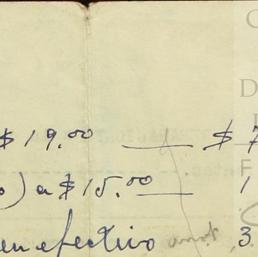 $ 19.00 — $ 7
) a $ 15.00 — 1
en efectivo anot. 3.